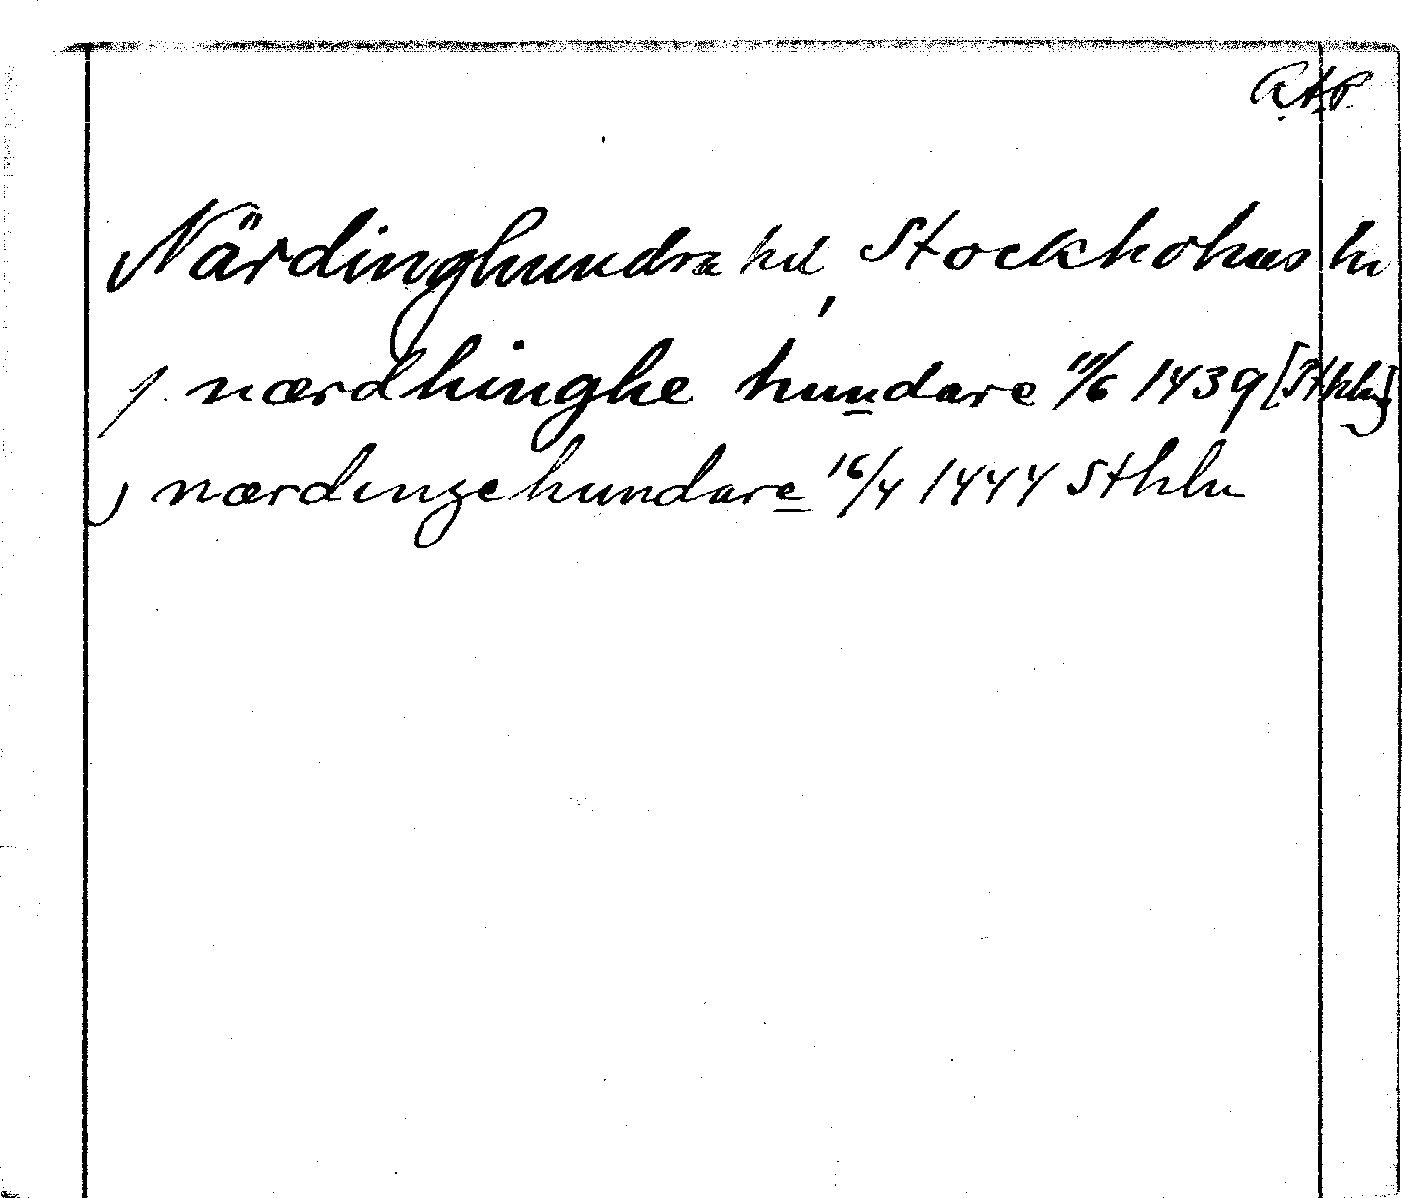 Närdinghundra hd, Stockholms ln
j nærdhinghe hundare 11/6 1439 [Sthlm]
j nærdinge hundare 16/4 1444 Sthlm